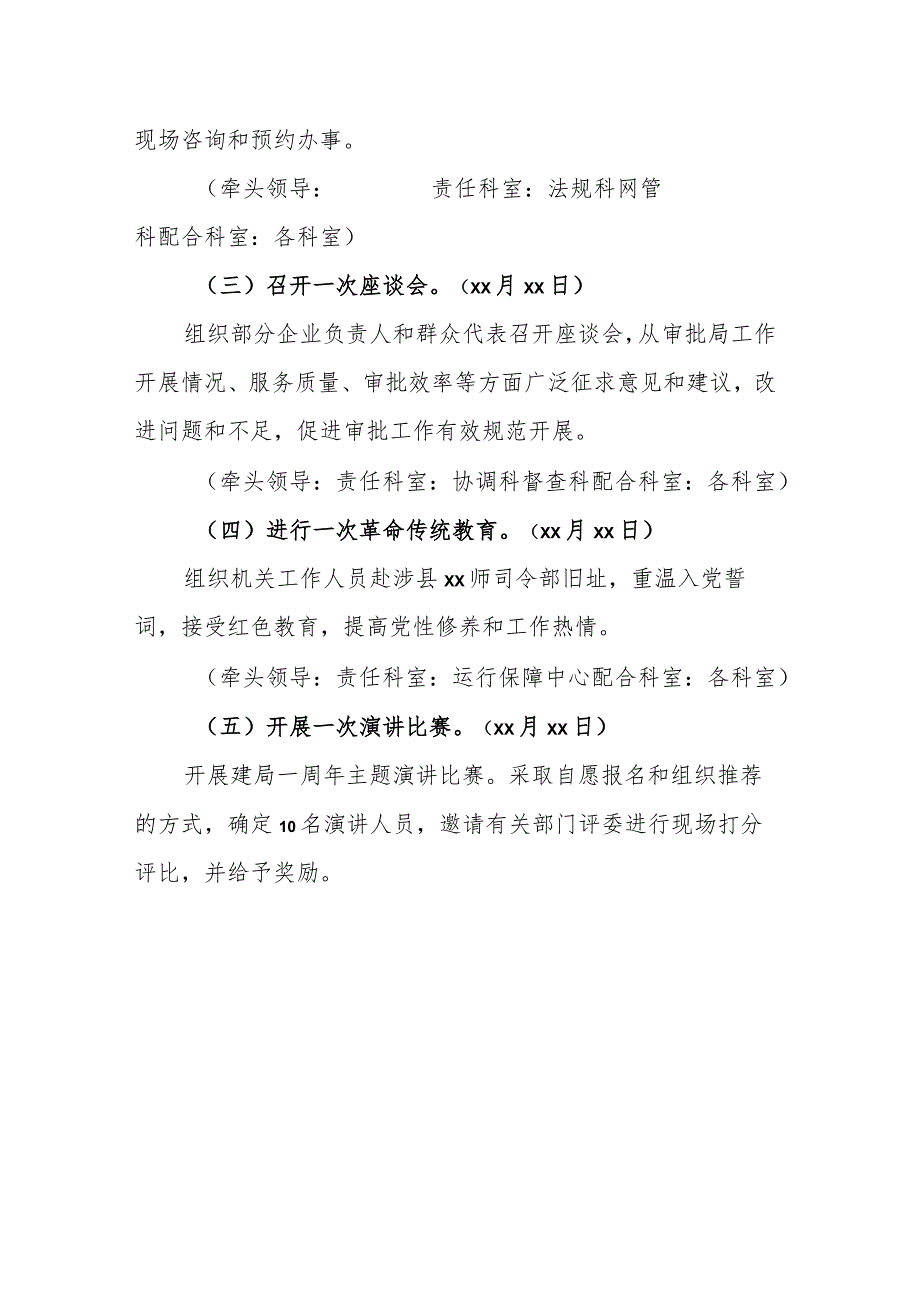 现场咨询和预约办事。
（牵头领导： 责任科室：法规科网管
科配合科室：各科室）
（三）召开一次座谈会。（xx月xx日）
组织部分企业负责人和群众代表召开座谈会，从审批局工作
开展情况、服务质量、审批效率等方面广泛征求意见和建议，改
进问题和不足，促进审批工作有效规范开展。
（牵头领导：责任科室：协调科督查科配合科室：各科室）
（四）进行一次革命传统教育。（xx月xx日）
组织机关工作人员赴涉县xx师司令部旧址，重温入党誓
词，接受红色教育，提高党性修养和工作热情。
（牵头领导：责任科室：运行保障中心配合科室：各科室）
（五）开展一次演讲比赛。（xx月xx日）
开展建局一周年主题演讲比赛。采取自愿报名和组织推荐
的方式，确定10名演讲人员，邀请有关部门评委进行现场打分
评比，并给予奖励。